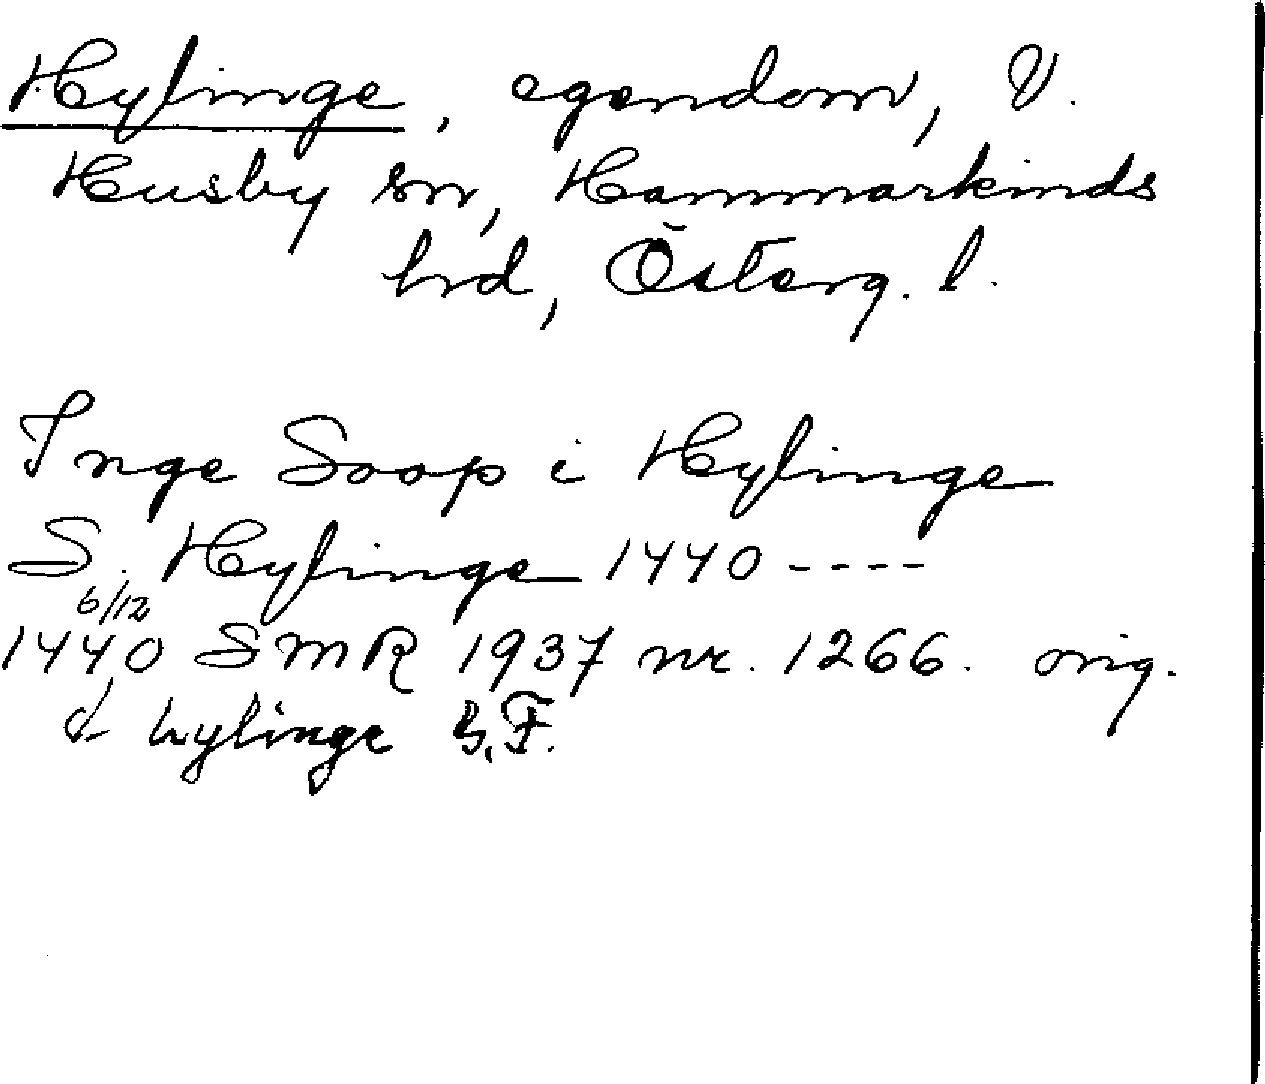 Hylinge, egendom, V.
Husby sn, Hammarkinds
hrd, Österg. l.
Inge Soop i Hylinge
S. Hylinge 1440 ----
6/12
1440 SMR 1937 nr. 1266. orig.
hylinge